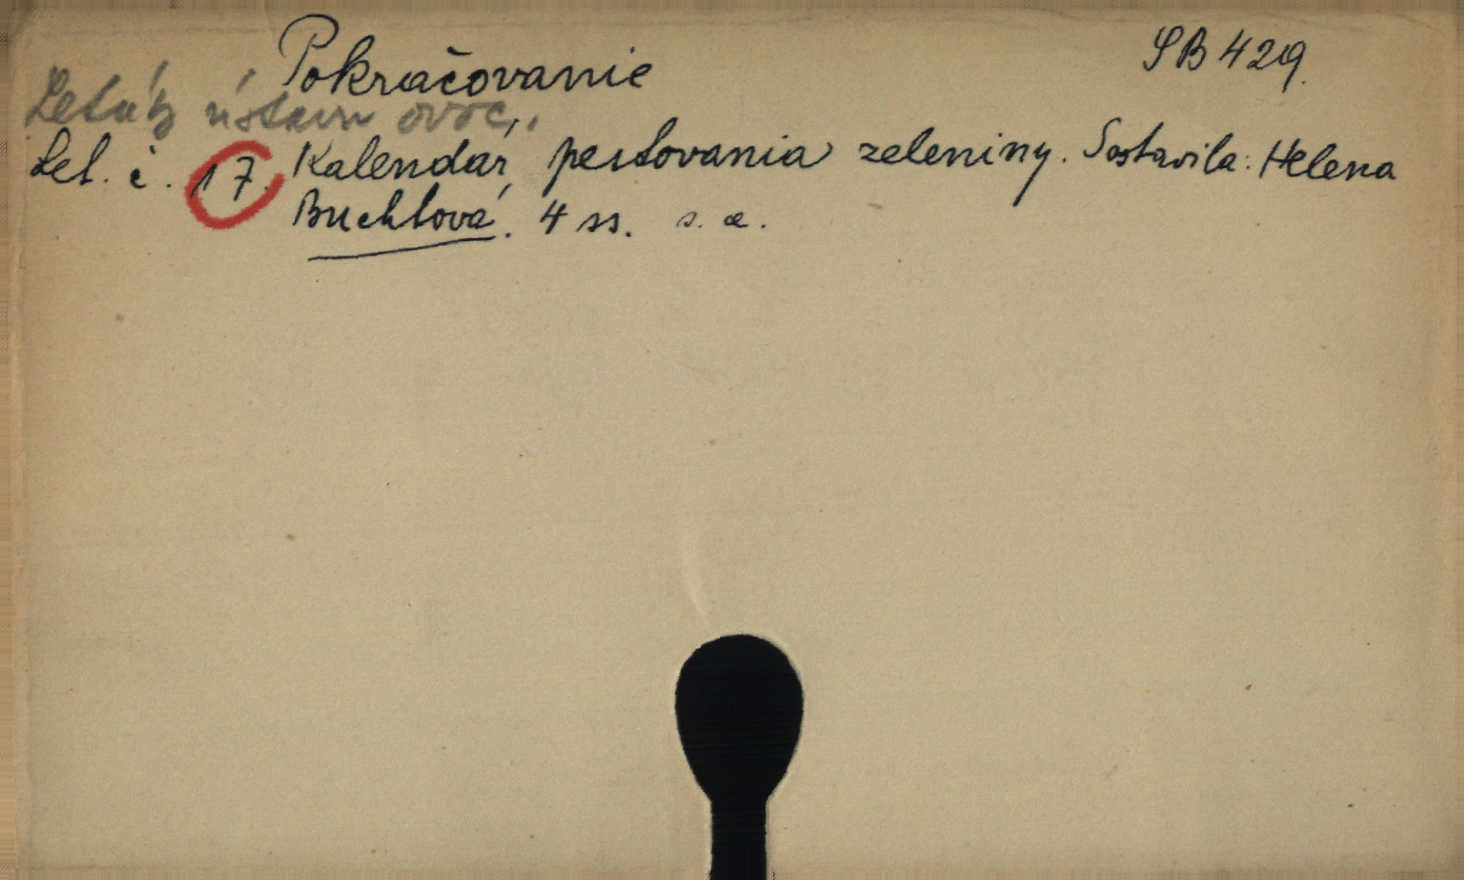 Pokračovanie
SB 429.
Leták ústavu ovoc.
Let. č. 17. Kalendár pestovania zeleniny. Sostavila: Helena
Buchtová. 4 ss. s. a.